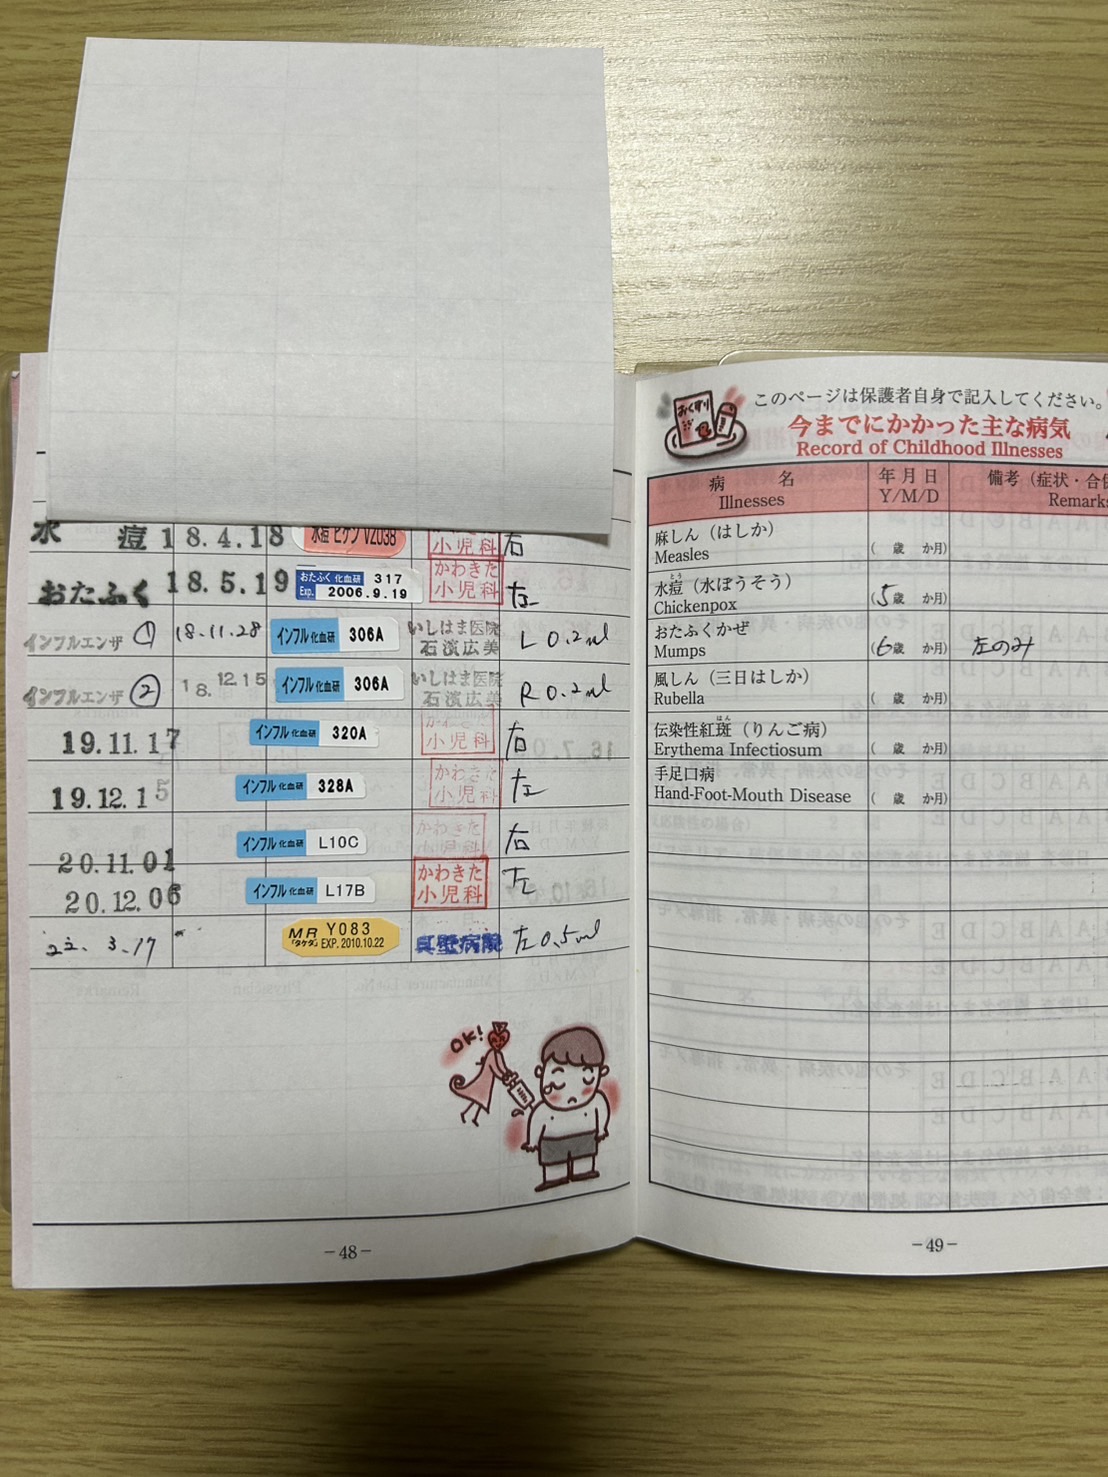 水 痘 18.4.18 水痘 ビケン VZ038 小児科 右
おたふく 18.5.19 おたふく 化血研 317 Exp. 2006.9.19 かわきた 小児科 左
インフルエンザ ① 18.11.28 インフル 化血研 306A いしはま医院 石濱広美 L 0.2ml
インフルエンザ ② 18.12.15 インフル 化血研 306A いしはま医院 石濱広美 R 0.2ml
19.11.17 インフル 化血研 320A かわきた 小児科 右
19.12.15 インフル 化血研 328A かわきた 小児科 左
20.11.01 インフル 化血研 L10C かわきた 小児科 右
20.12.06 インフル 化血研 L17B かわきた 小児科 左
22.3.17 MR 「タケダ」 Y083 EXP. 2010.10.22 真壁病院 左 0.5ml
OK!
-48-
おくすり
このページは保護者自身で記入してください。
今までにかかった主な病気
Record of Childhood Illnesses
病 名 年 月 日 備考(症状・合併
Illnesses Y/M/D Remarks
麻しん(はしか)
Measles ( 歳 か月)
水痘(水ぼうそう)
とう
Chickenpox (5歳 か月)
おたふくかぜ
Mumps (6歳 か月) 左のみ
風しん(三日はしか)
Rubella ( 歳 か月)
伝染性紅斑(りんご病)
はん
Erythema Infectiosum ( 歳 か月)
手足口病
Hand-Foot-Mouth Disease ( 歳 か月)
-49-